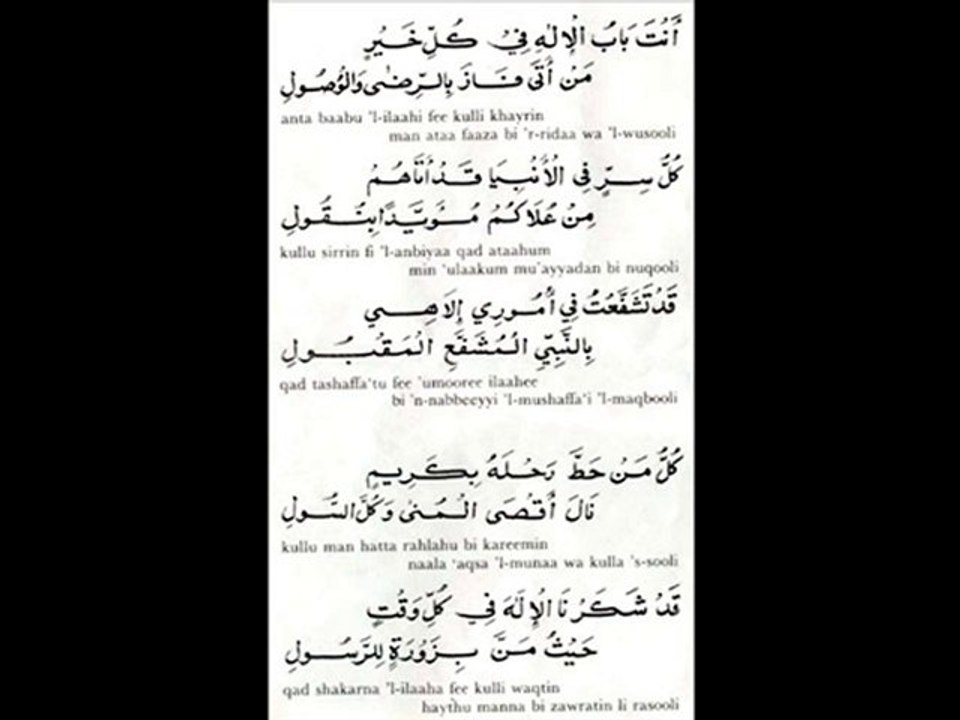 أَنْتَ بَابُ الْإِلٰهِ فِيْ كُلِّ خَيْرٍ
مَنْ أَتَى فَازَ بِالرِّضٰى وَالْوُصُولِ
anta baabu 'l-ilaahi fee kulli khayrin
man ataa faaza bi 'r-ridaa wa 'l-wusooli
كُلُّ سِرٍّ فِي الْأَنْبِيَا قَدْ أَتَاهُمْ
مِنْ عُلَاكُمْ مُؤَيَّدًا بِنُقُولِ
kullu sirrin fi 'l-anbiyaa qad ataahum
min 'ulaakum mu'ayyadan bi nuqooli
قَدْ تَشَفَّعْتُ فِي أُمُورِي إِلَاهِي
بِالنَّبِيِّ الْمُشَفَّعِ الْمَقْبُولِ
qad tashaffa'tu fee 'umooree ilaahee
bi 'n-nabbeeyyi 'l-mushaffa'i 'l-maqbooli
كُلُّ مَنْ حَطَّ رَحْلَهُ بِكَرِيمٍ
نَالَ أَقْصَى الْمُنٰى وَكُلَّ السُّولِ
kullu man hatta rahlahu bi kareemin
naala 'aqsa 'l-munaa wa kulla 's-sooli
قَدْ شَكَرْنَا الْإِلٰهَ فِي كُلِّ وَقْتٍ
حَيْثُ مَنَّ بِزَوْرَةٍ لِلرَّسُولِ
qad shakarna 'l-ilaaha fee kulli waqtin
haythu manna bi zawratin li rasooli